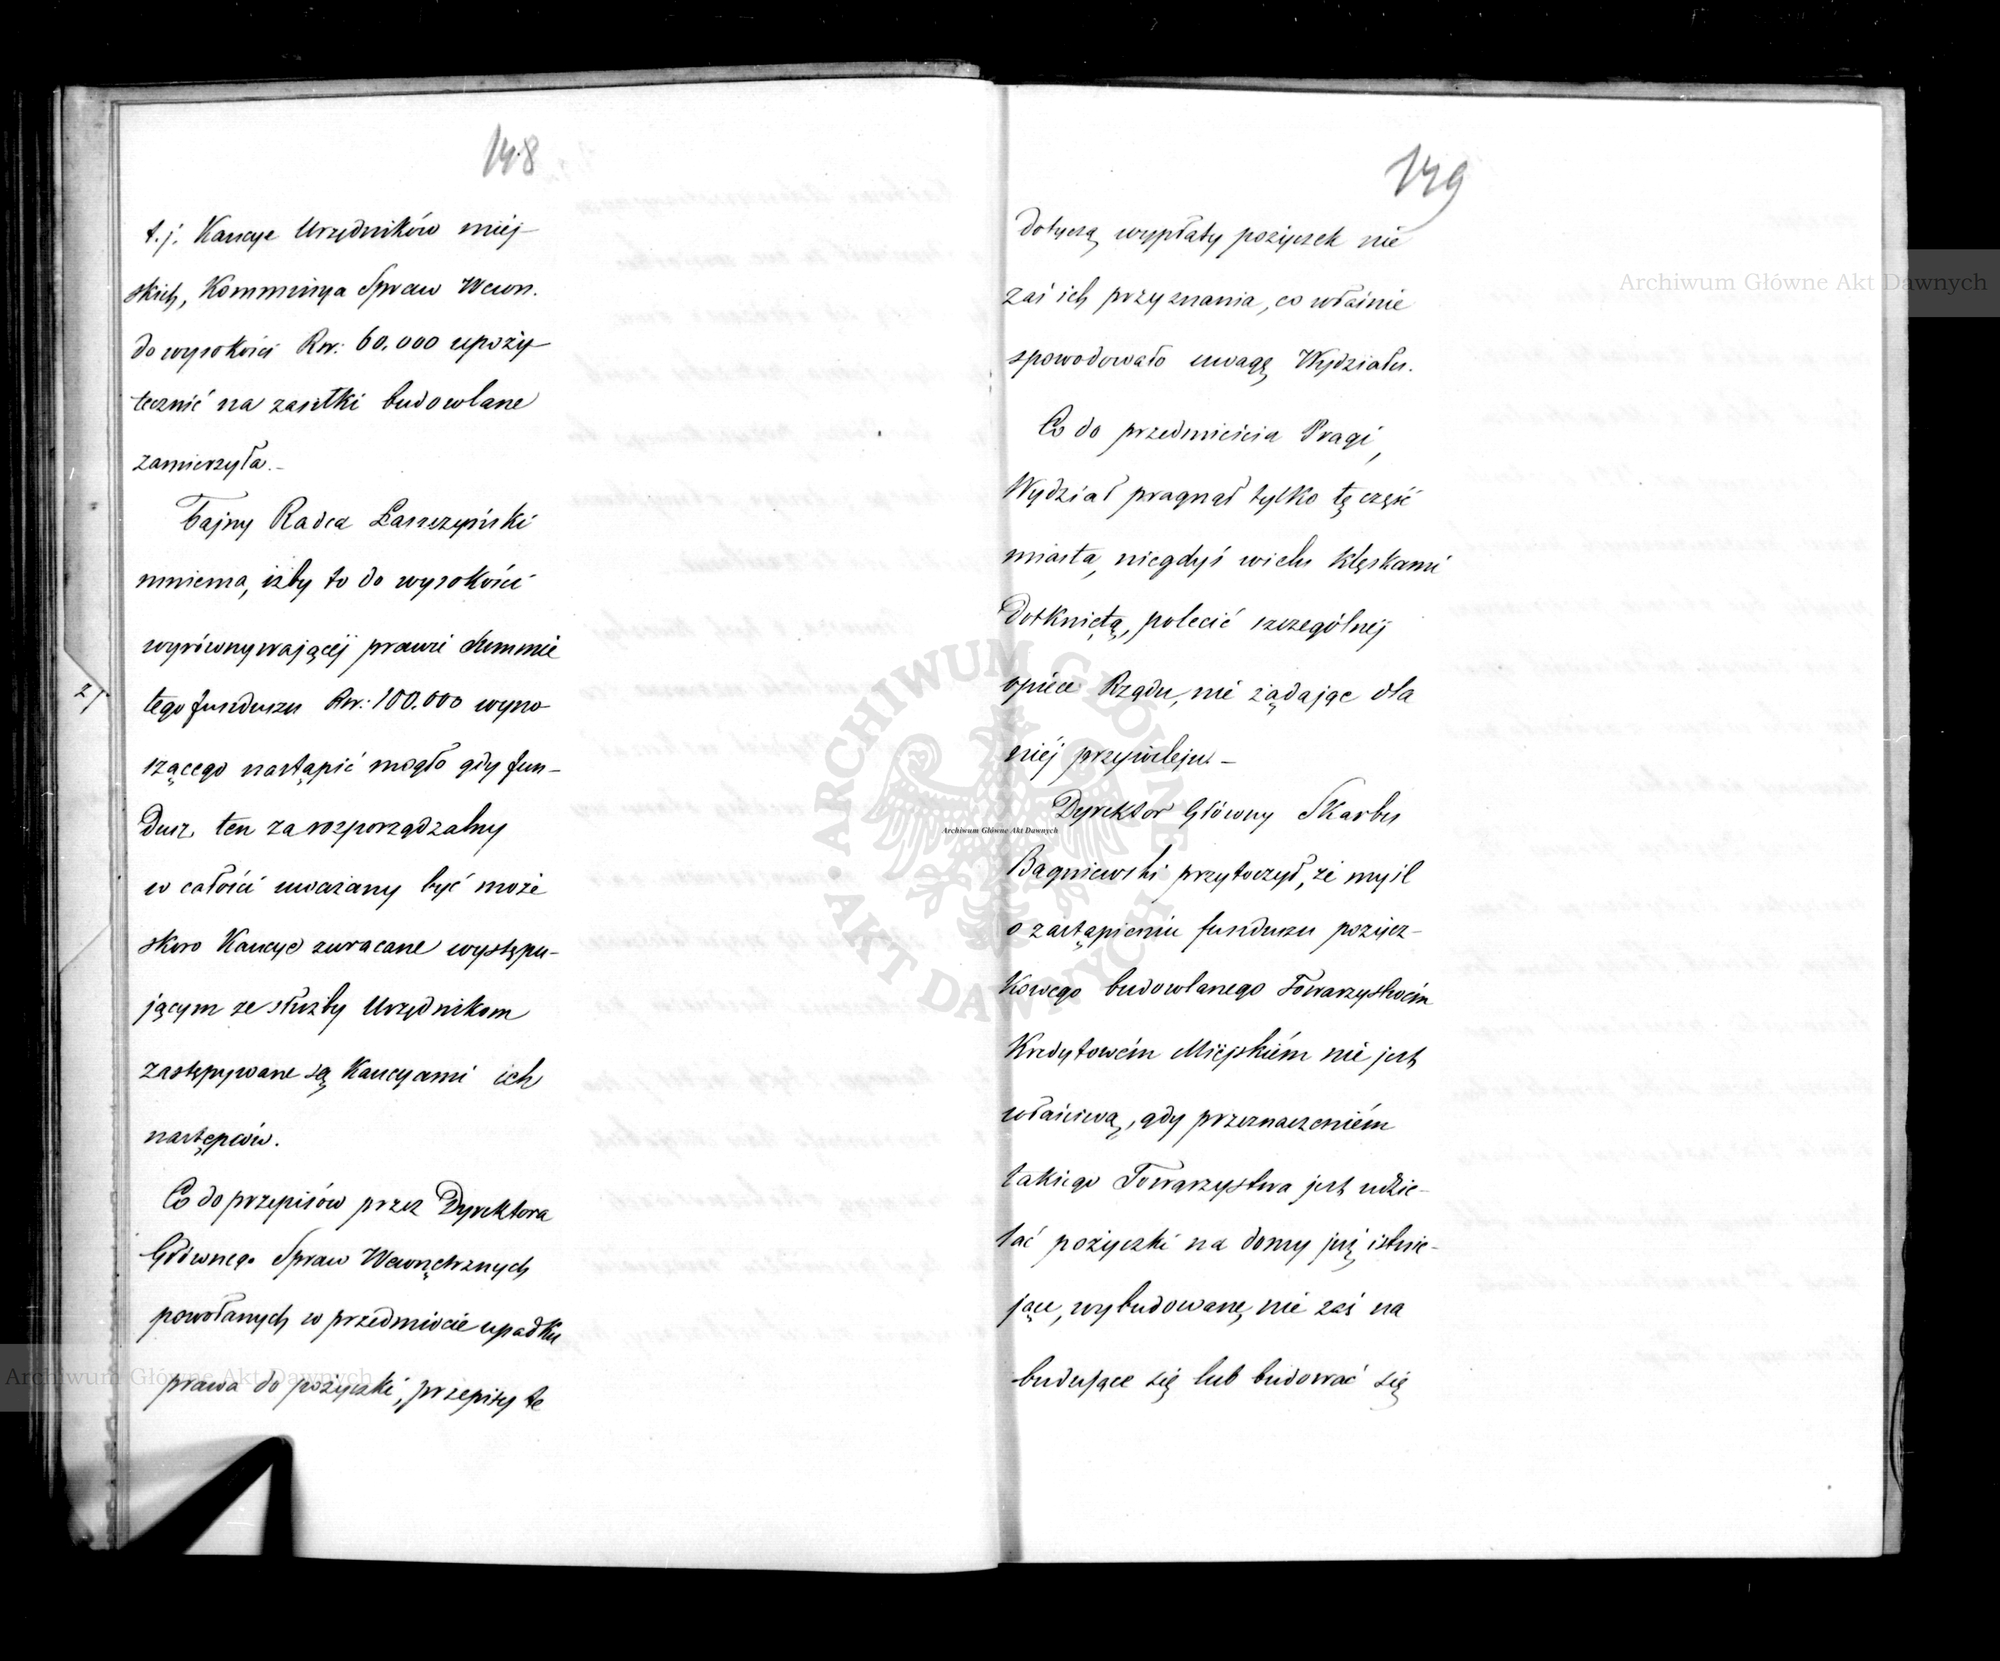 148
t. j. Kaucye Urzędników miej-
skich, Kommissya Spraw Wewn.
do wysokości Rsr: 60.000 upoży-
tecznić na zasiłki budowlane
zamierzyła.-
Tajny Radca Łaszczyński
mniema, iżby to do wysokości
wyrównywającéj prawie summie
tego funduszu Rsr: 100.000 wyno-
szącego nastąpić mogło gdy fun-
dusz ten za rozporządzalny
w całości uważany być może
skoro Kaucye zwracane występu-
jącym ze służby Urzędnikom
zastępywane są Kaucyami ich
następców.
Co do przepisów przez Dyrektora
Głównego Spraw Wewnętrznych
powołanych w przedmiocie upadku
prawa do pożyczki, przepisy te
149
dotyczą wypłaty pożyczek nie
zaś ich przyznania, co właśnie
spowodowało uwagę Wydziału.
Co do przedmieścia Pragi,
Wydział pragnął tylko tę część
miasta, niegdyś wielu klęskami
dotkniętą, polecić szczególnéj
opiece Rządu, nie żądając dla
niéj przywileju.-
Dyrektor Główny Skarbu
Bagniewski przytoczył, że myśl
o zastąpieniu funduszu pożycz-
kowego budowlanego Towarzystwem
Kredytowém Miejskiém nie jest
właściwą, gdy przeznaczeniém
takiego Towarzystwa jest udzie-
lać pożyczki na domy już istnie-
jące, wybudowane, nie zaś na
budujące się lub budować się
Archiwum Główne Akt Dawnych
Archiwum Główne Akt Dawnych
Archiwum Główne Akt Dawnych
ARCHIWUM GŁÓWNE AKT DAWNYCH